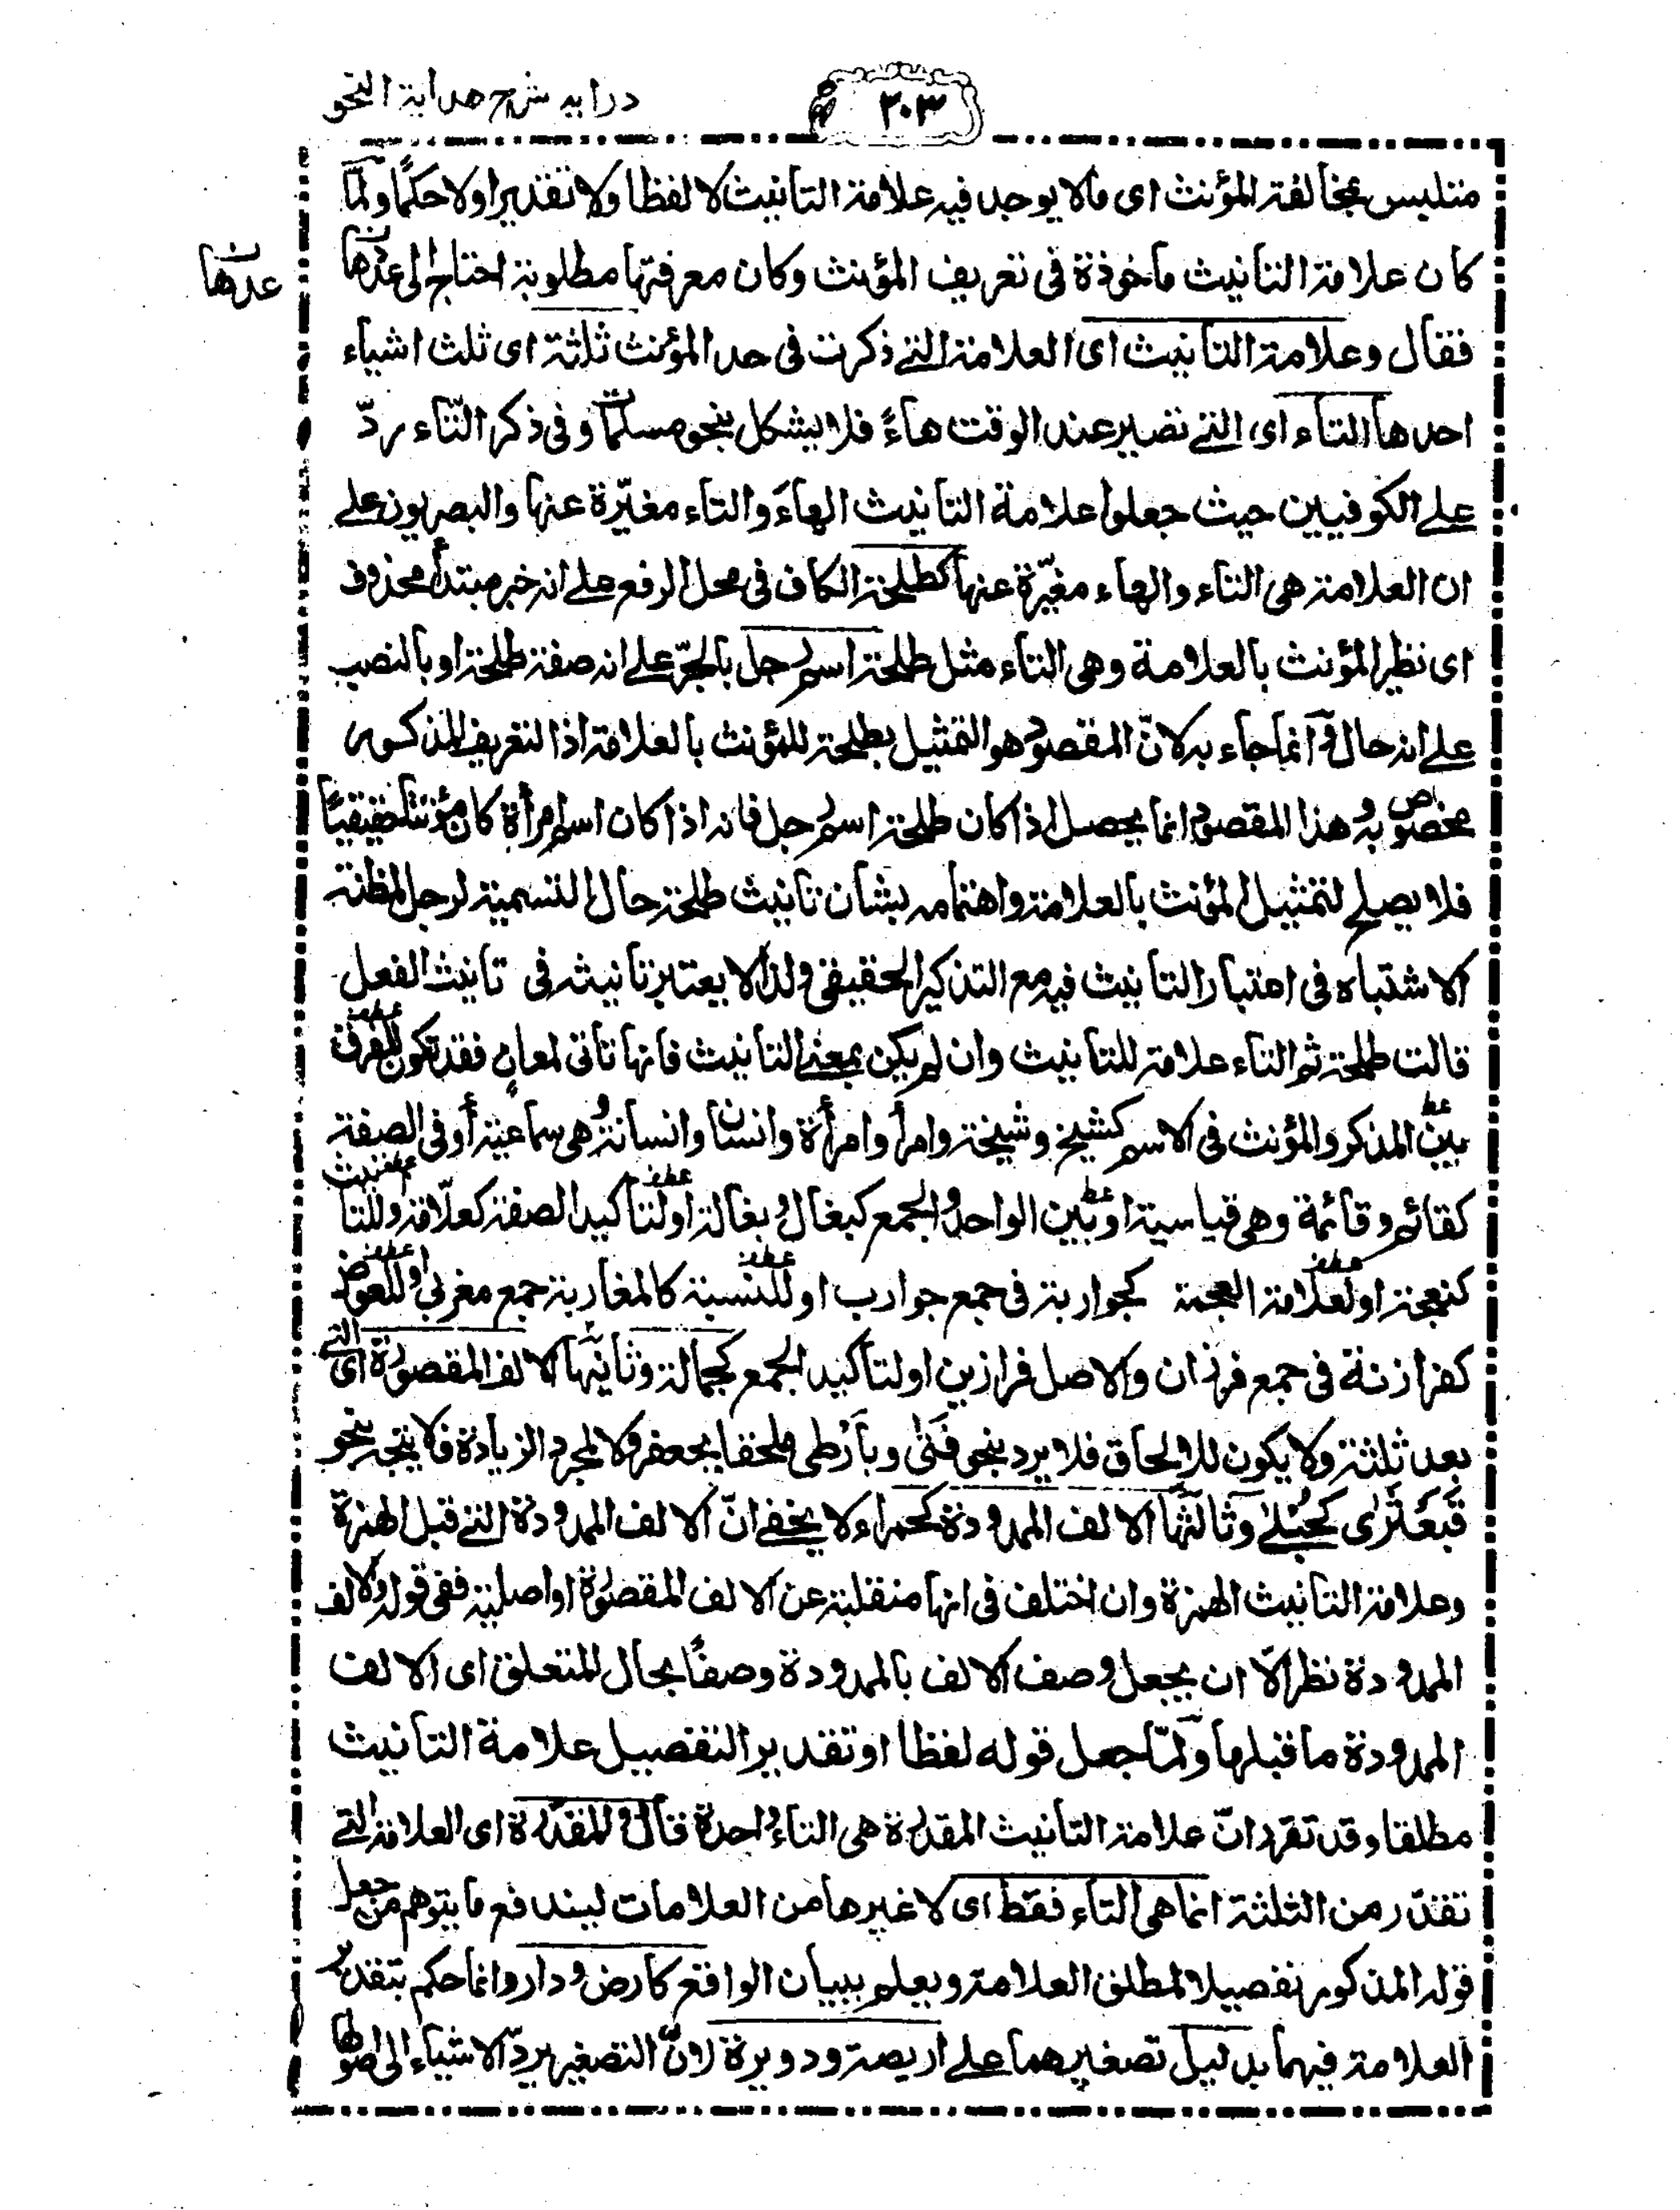 ٢٠٣
درايه شرح هداية النحو
متلبس بمخالفة المؤنث اى مالا يوجد فيه علامة التأنيث لا لفظا ولا تقديرا ولا حكمًا ولمّا
كان علامة التأنيث ماخوذة فى تعريف المؤنث وكان معرفتها مطلوبة احتاج الى عدّها
عدها
فقال وعلامة التأنيث اى العلامة التے ذكرت فى حد المؤنث ثلثة اى ثلث اشياء
احدها التاء اى التے تصير عند الوقت هاءً فلا يشكل بنحو مسلمات وفى ذكر التّاء ردّ
علے الكوفيين حيث جعلوا علامة التأنيث الهاءَ والتاء مغيّرة عنها والبصريون علے
ان العلامة هى التاء والهاء مغيّرة عنها كطلحة الكاف فى محل الرفع علے انه خبر مبتدأ محذوف
اى نظير المؤنث بالعلامة وهى التاء مثل طلحة اسم رجل بالجرّ علے انه صفة طلحة او بالنصب
علے انه حال وانما جاء به لانّ المقصود هو التمثيل بطلحة للمؤنث بالعلامة اذ التعريف المذكور
مخصوص به وهذا المقصود انما يحصل اذا كان طلحة اسم رجل فانه اذا كان اسم امرأة كان مؤنثا حقيقيًا
فلا يصلح لتمثيل المؤنث بالعلامة واهتمامه بشان تأنيث طلحة حال التسمية لرجل لمظنة
الاشتباه فى اعتبار التأنيث فيه مع التذكير الحقيقى ولذا لا يعتبر تأنيثه فى تانيث الفعل
قالت طلحة ثم التاء علامة للتأنيث وان لم يكن بمعنے التأنيث فانها تأتى لمعانٍ فقد تكون للفرق
بين المذكر والمؤنث فى الاسم كشيخ وشيخة وامرأ وامرأة وانسان وانسانة وهى سماعية أو فى الصفة
كقائم وقائمة وهى قياسية او بين الواحد والجمع كبغال وبغالة او لتأكيد الصفة كعلّامة وللتأنيث
كنعجة او لعلامة العجمة كجواربة فى جمع جوارب او للنسبة كالمغاربة جمع مغربى او للعوض
كفرازنة فى جمع فرزان والاصل فرازين او لتأكيد الجمع كجمالة وثانيها الالف المقصورة اى التے
بعد ثلثة ولا يكون للالحاق فلا يرد بنحو فَتىٰ وبأرطى ملحقا بجعفر ولا لمجرد الزيادة فلا يتجه بنحو
قَبَعْثَرٰى كحُبْلےٰ وثالثها الالف الممدودة كحمراء ولا يخفے انّ الالف الممدودة التے قبل الهمزة
وعلامة التأنيث الهمزة وان اختلف فى انها منقلبة عن الالف المقصورة او اصلية ففى قوله والالف
الممدودة نظر الّا ان يجعل وصف الالف بالممدودة وصفًا بحال المتعلق اى الالف
الممدودة ما قبلها ولمّا جعل قوله لفظا او تقدير التفصيل علامة التأنيث
مطلقا وقد تقرد انّ علامة التأنيث المقدرة هى التاء واحدة قال والمقدّرة اى العلامة التے
تقدّر من الثلثة انما هى التاء فقط اى لا غيرها من العلامات ليندفع ما يتوهم من جعل
قوله المذكور تفصيلا لمطلق العلامة ويعلم ببيان الواقع كارض ودار وانما حكم بتقدير
العلامة فيهما بدليل تصغيرهما علے اريضة ودويرة لانّ التصغير يردّ الاشياء الى اصولها